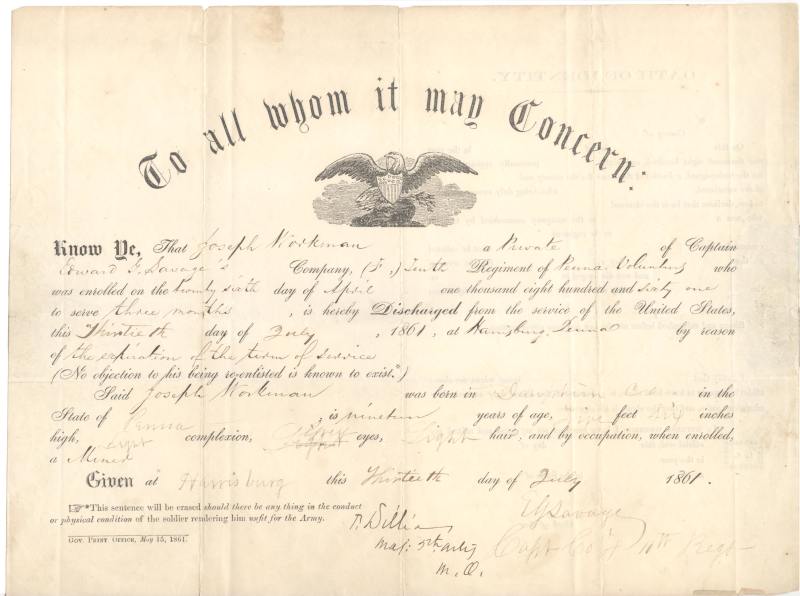 To all whom it may Concern:
Know Ye, That Joseph Workman a Private of Captain
Edward G. Savage's Company, (F,) Tenth Regiment of Penna. Volunteers who
was enrolled on the twenty sixth day of April one thousand eight hundred and sixty one
to serve three months, is hereby Discharged from the service of the United States,
this Thirtieth day of July, 1861, at Harrisburg, Penna by reason
of the expiration of the term of service
(No objection to his being re-enlisted is known to exist.*)
Said Joseph Workman was born in in the
State of Penna, is nineteen years of age, five feet inches
high, light complexion, eyes, light hair, and by occupation, when enrolled,
a Miner
Given at Harrisburg this Thirtieth day of July 1861.
*This sentence will be erased should there be any thing in the conduct
or physical condition of the soldier rendering him unfit for the Army.
Gov. Print. Office, May 15, 1861.
Maj: 5th Arty
M. O.
E G Savage
Capt Co F 10th Regt